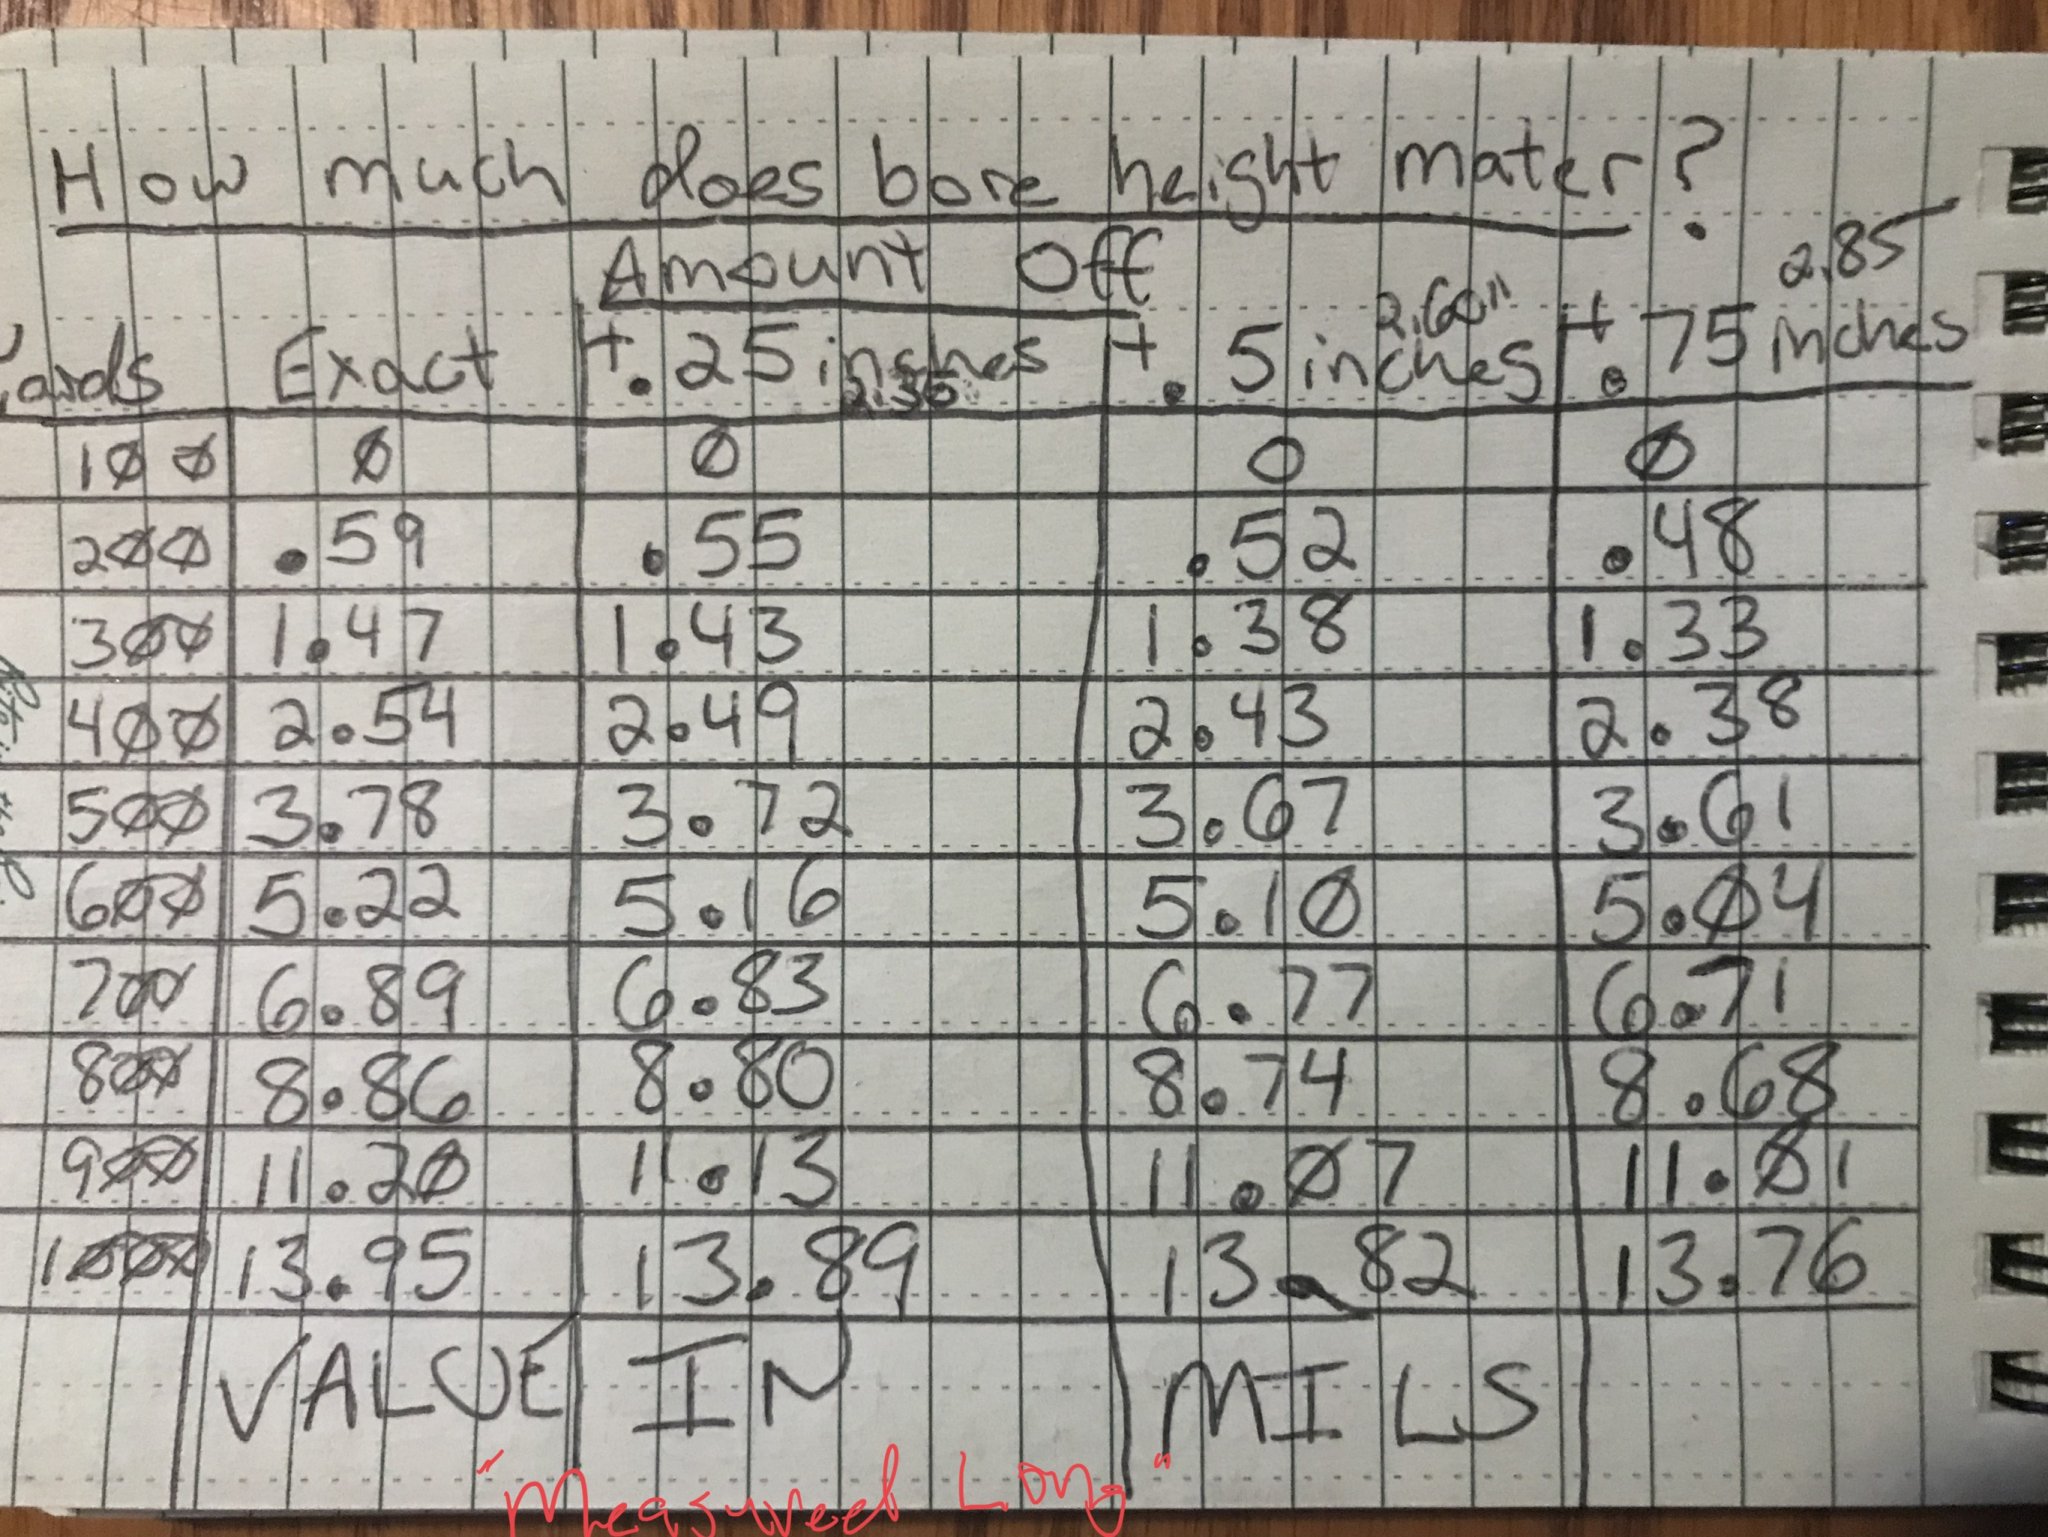 How much does bore height mater?
Amount Off
2.85
2.60"
Yards Exact +.25 inches +.5 inches +.75 inches
2.35
100 0 0 0 0
200 .59 .55 .52 .48
300 1.47 1.43 1.38 1.33
400 2.54 2.49 2.43 2.38
500 3.78 3.72 3.67 3.61
600 5.22 5.16 5.10 5.04
700 6.89 6.83 6.77 6.71
800 8.86 8.80 8.74 8.68
900 11.20 11.13 11.07 11.01
1000 13.95 13.89 13.82 13.76
VALUE IN MILS
"Measured Long"